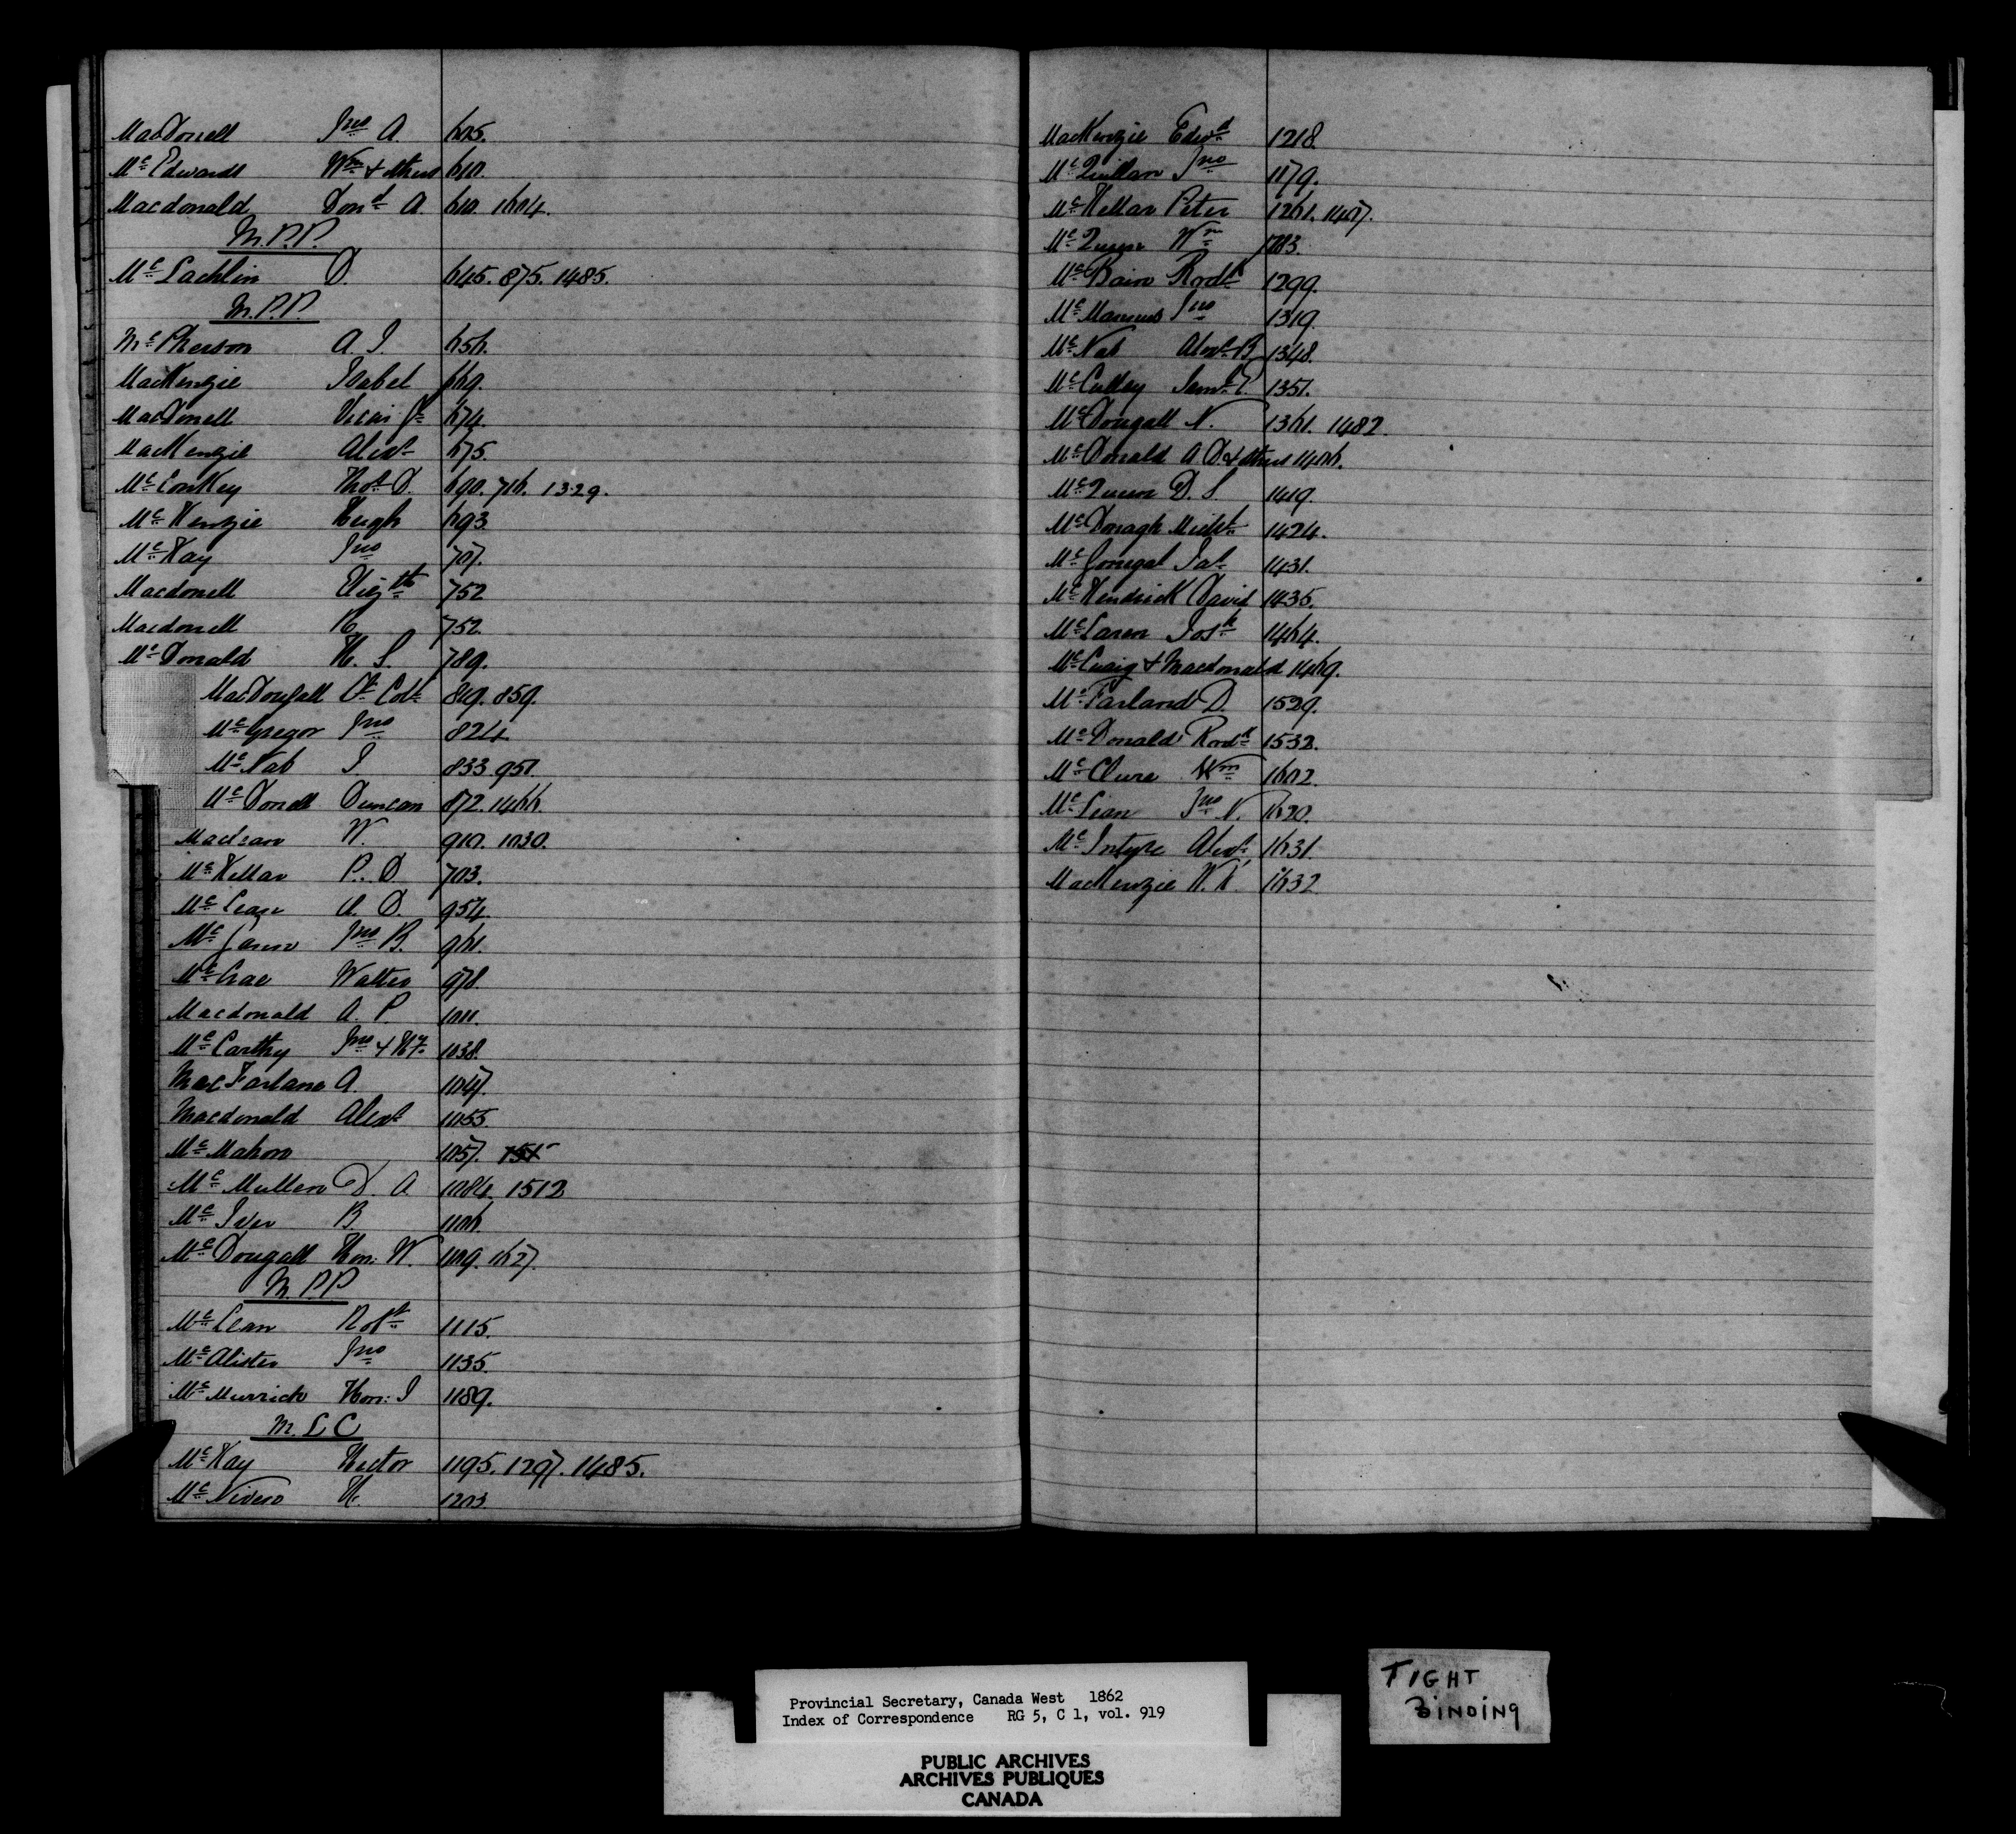 MacDonell Jno A. 605.
McEdwards Wm & others 610.
Macdonald Dond A. 610. 1604.
M.P.P.
McLachlin D. 645. 875. 1485.
M.P.P.
McPherson A. J. 656.
MacKenzie Isabel 669.
MacDonell Vicar Gl 674.
MacKenzie Alexr 675.
McConkey Thos D. 690. 716. 1329.
McKenzie Hugh 693
McKay Jno 707.
Macdonell Elizth 752
Macdonell 752.
McDonald H. S. 789.
MacDougall Lt Col 819. 859.
McGregor Jno 824
McNab J 833. 951.
McDonell Duncan 872. 1466.
Maclean W. 910. 1030.
McKellar P. D. 703.
McLean A. D. 954.
McLaren Jno B. 961.
McCrae Walter 978.
Macdonald A. P. 1011.
McCarthy Jno & Hy 1038.
MacFarlane A. 1047.
Macdonald Alexr 1055.
McMahon 1057. 751
McMullen D. A 1084. 1512
McIver B. 1106.
McDougall Hon: W. 1109. 1627.
M.P.P
McLean Robt 1115.
McAlister Jno 1135.
McMurrich Hon: J 1189.
M.L.C
McKay Hector 1195. 1297. 1485.
McNiven H. 1203.
MacKenzie Edwd 1218.
McQuillan Jno 1179.
McKellar Peter 1261. 1407.
McQueen Wm 783.
McBain Rodk 1299.
McManus Jno 1319.
McNab Alexr B 1348.
McCulley Saml P. 1351.
McDougall N. 1361. 1482.
McDonald A D. & others 1406.
McQueen D. S. 1419.
McDonagh Michl 1424.
McGonegal Jas 1431.
McKendrick David 1435.
McLaren Josh 1464.
McCuaig & Macdonald 1469.
McFarland D. 1529.
McDonald Rodk 1532.
McClure Wm 1602.
McLean Jno N. 1620.
McIntyre Alexr 1631.
MacKenzie 1632
Provincial Secretary, Canada West 1862
Index of Correspondence RG 5, C 1, vol. 919
PUBLIC ARCHIVES
ARCHIVES PUBLIQUES
CANADA
TIGHT
BINDING